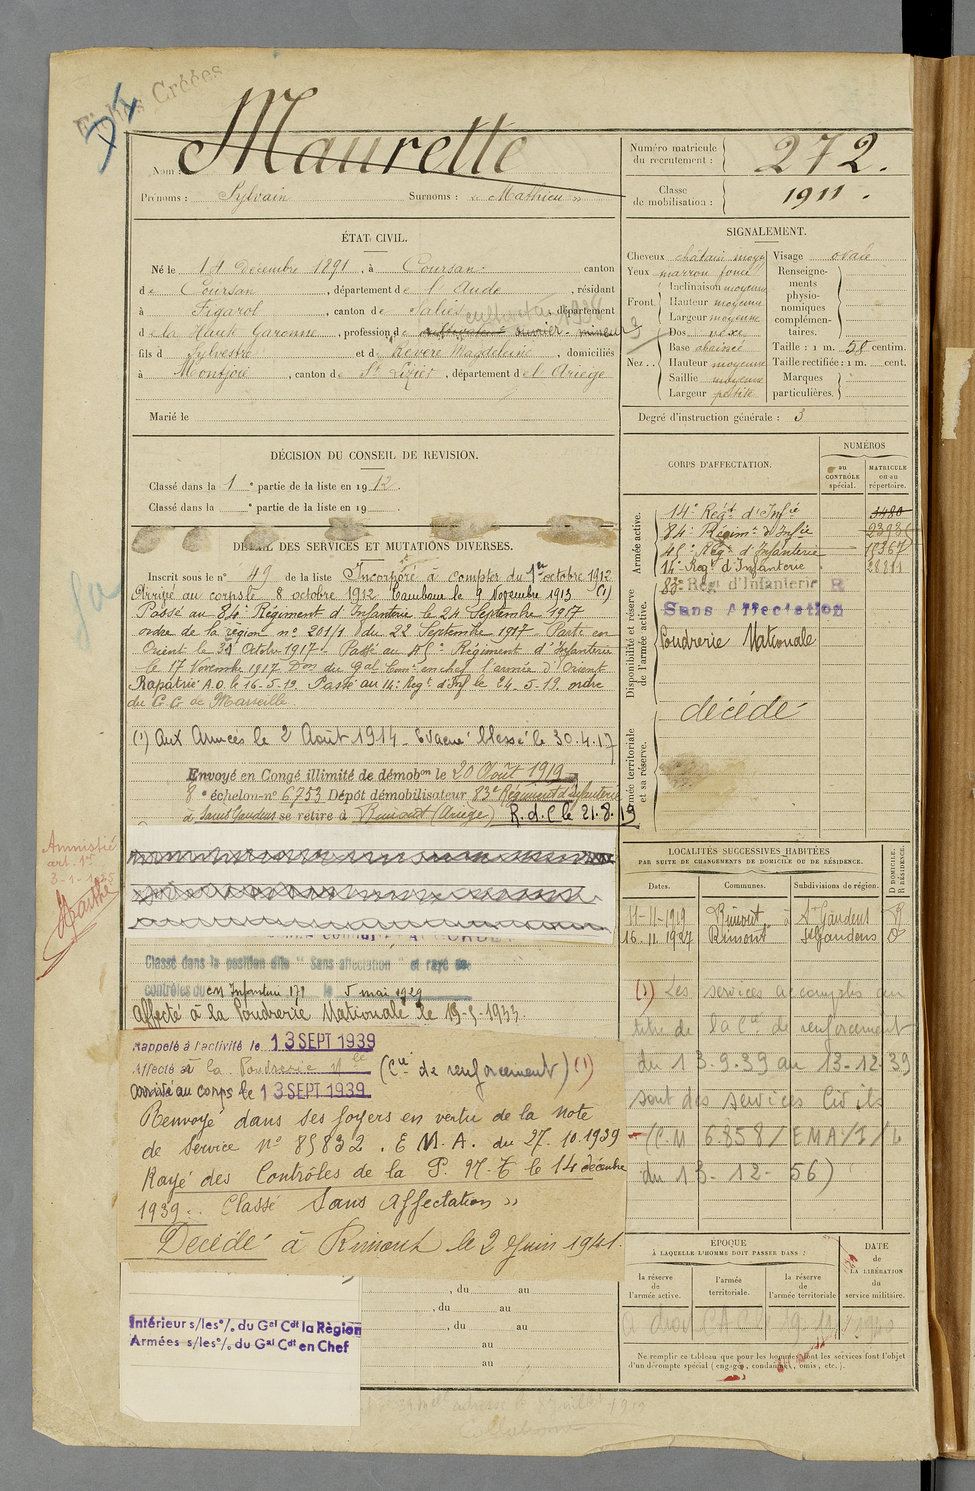 Fiches Créées
Nom : Maurette
Prénoms : Sylvain Surnoms : « Mathieu »
Numéro matricule du recrutement : 272.
Classe de mobilisation : 1911.
ÉTAT CIVIL.
Né le 14 Décembre 1891, à Coursan canton
de Coursan, département de l'Aude, résidant
à Figarol, canton de Salies, département
de la Haute Garonne, profession de cultivateur ouvrier-mineur
cultivateur 1936
fils d Sylvestre et de Révère Magdeleine, domiciliés
à Montjoie, canton de St Lizier, département de l'Ariège
Marié le
SIGNALEMENT.
Cheveux châtain moyen
Yeux marron foncé
Front Inclinaison moyenne
Hauteur moyenne
Largeur moyenne
Nez Dos vexe
Base abaissée
Hauteur moyenne
Saillie moyenne
Largeur petite
Visage ovale
Renseignements physionomiques complémentaires.
Taille : 1 m. 50 centim.
Taille rectifiée : 1 m. cent.
Marques particulières.
Degré d'instruction générale : 3
DÉCISION DU CONSEIL DE REVISION.
Classé dans la 1e partie de la liste en 1912.
Classé dans la e partie de la liste en 19 .
CORPS D'AFFECTATION.
NUMÉROS
au CONTRÔLE spécial.
MATRICULE ou au répertoire.
Armée active.
14e Régt d'Infie 1480
84e Régimt d'Infie
45e Régt d'Infanterie
14e Regt d'Infanterie
Disponibilité et réserve de l'armée active.
83e Rég d'Infanterie R
Sans Affectation
Poudrerie Nationale
Armée territoriale et sa réserve.
décédé
DÉTAIL DES SERVICES ET MUTATIONS DIVERSES.
Inscrit sous le n° 49 de la liste Incorporé à compter du 1er octobre 1912
Arrivé au corps le 8 octobre 1912. Tambour le 9 Novembre 1913 (1)
Passé au 84e Régiment d'Infanterie le 24 Septembre 1917
ordre de la région n° 201/1 du 22 Septembre 1917. Parti en
Orient le 31 Octobre 1917. Passé au 45e Régiment d'Infanterie
le 17 Novembre 1917 Don du Gal Comt en chef l'armée d'Orient
Rapatrié A.O. le 16-5-19. Passé au 14e Regt d'Inf le 24-5-19. ordre
du G.G de Marseille.
(1) Aux Armées le 2 Août 1914 - Evacué blessé le 30.4.17
Envoyé en Congé illimité de démobon le 20 Août 1919
8e échelon-n° 6753 Dépôt démobilisateur 83e Régiment d'Infanterie
à Saint Gaudens se retire à Rimont (Ariège) R.d.C le 21.8.19
Amnistié
art. 1er
3-1-1925
Classé dans la position dite "Sans affectation" et rayé des
contrôles du CM Infanterie 17e le 5 mai 1929
affecté à la Poudrerie Nationale le 19-5-1933
Rappelé à l'activité le 13 SEPT 1939
Affecté à la Poudrerie Nle (Cie de renforcement) (1)
arrivé au corps le 13 SEPT 1939
Renvoyé dans ses foyers en vertu de la note
de Service N° 85832. E.M.A. du 27.10.1939
Rayé des Contrôles de la P. N-T le 14 décembre
1939.. Classé Sans Affectation »
Décédé à Rimont le 2 Juin 1941.
, du au
, du au
, du au
au
au
Intérieur s/les o/. du Gal Cdt la Région
Armées s/les o/. du Gal Cdt en Chef
LOCALITÉS SUCCESSIVES HABITÉES
PAR SUITE DE CHANGEMENTS DE DOMICILE OU DE RÉSIDENCE.
Dates. Communes. Subdivisions de région. D DOMICILE. R RÉSIDENCE.
11-11-1919 Rimont St Gaudens R
16.11.1927 Rimont St Gaudens D
(1) Les services accomplis au
titre de la Cie de renforcement
du 13.9.39 au 13-12-39
sont des services Civils
(C.M 6.858/EMA/I/L
du 13-12-56)
ÉPOQUE
À LAQUELLE L'HOMME DOIT PASSER DANS :
la réserve de l'armée active.
l'armée territoriale.
la réserve de l'armée territoriale
DATE de LA LIBÉRATION du service militaire.
Ne remplir ce tableau que pour les hommes dont les services font l'objet
d'un décompte spécial (engagés, condamnés, omis, etc.).